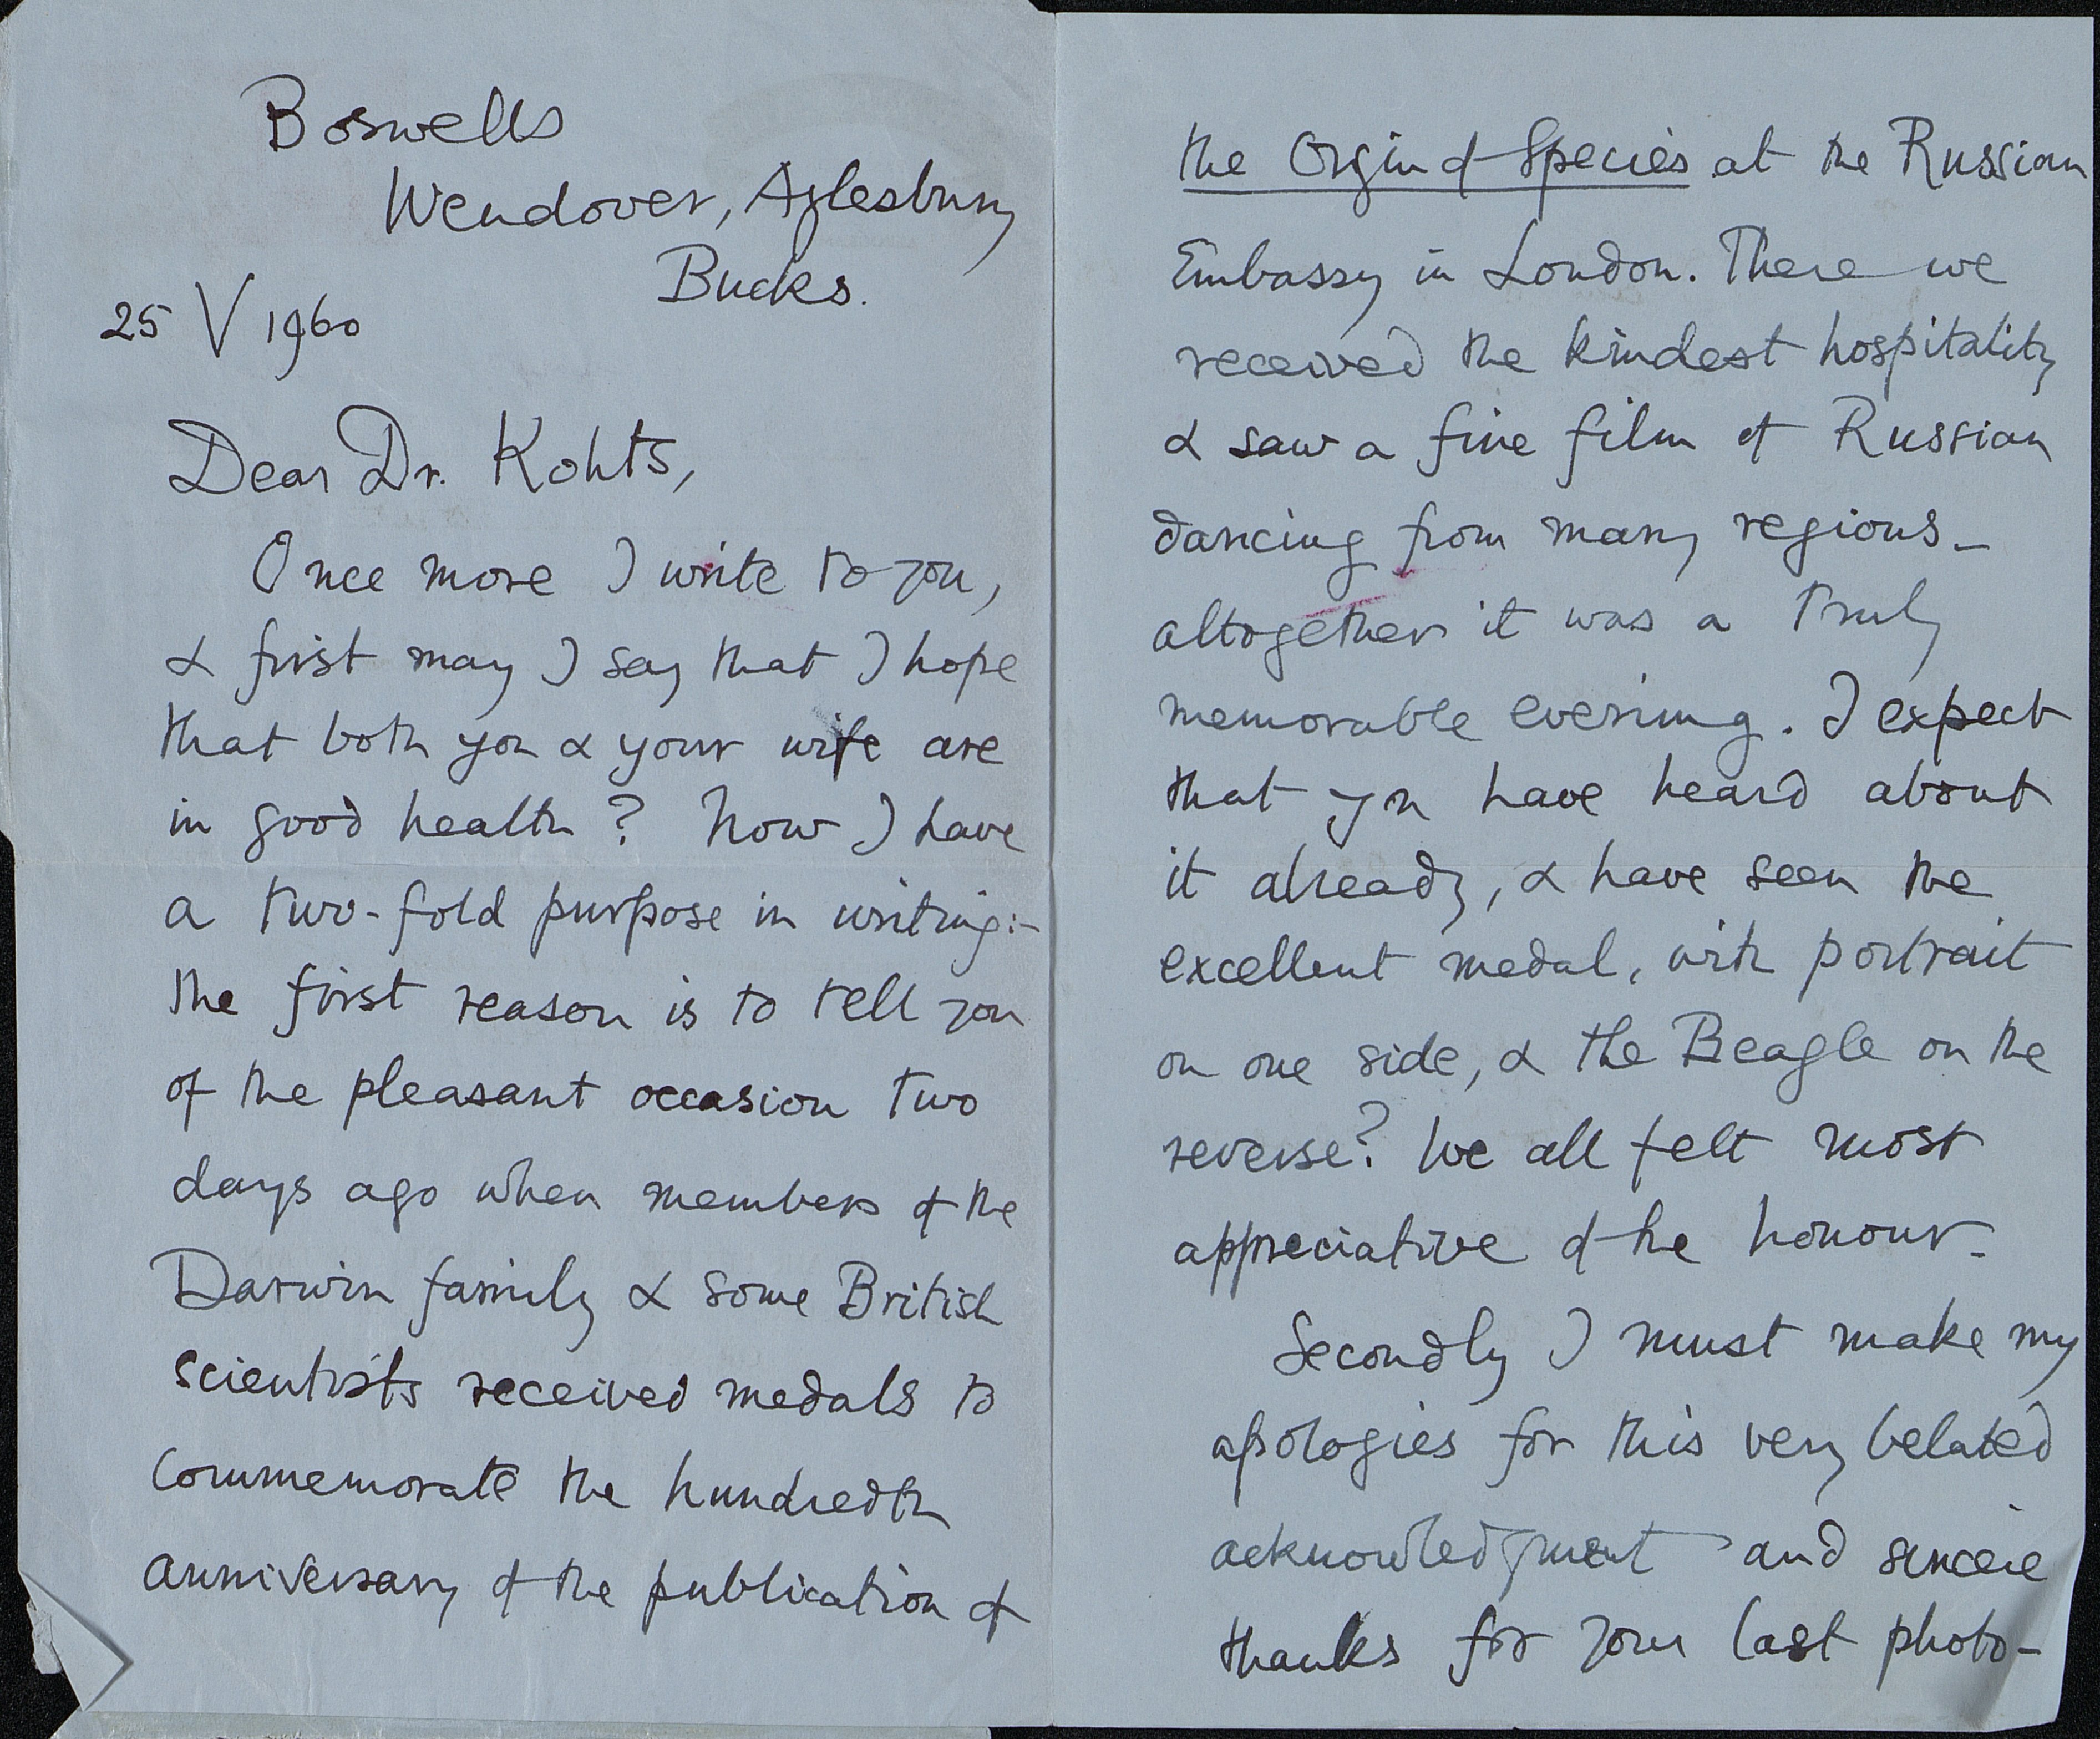 Boswells
Wendover, Aylesbury
Bucks.
25 V 1960
Dear Dr. Kohts,
Once more I write to you,
& first may I say that I hope
that both you & your wife are
in good health? Now I have
a two-fold purpose in writing:-
the first reason is to tell you
of the pleasant occasion two
days ago when members of the
Darwin family & some British
scientists received medals to
commemorate the hundredth
anniversary of the publication of
the Orgin of Species at the Russian
Embassy in London. There we
received the kindest hospitality
& saw a fine film of Russian
dancing from many regions -
altogether it was a truly
memorable evening. I expect
that you have heard about
it already, & have seen the
excellent medal, with portrait
on one side, & the Beagle on the
reverse? We all felt most
appreciative of the honour.
Secondly I must make my
apologies for this very belated
acknowledgment and sincere
thanks for your last photo-